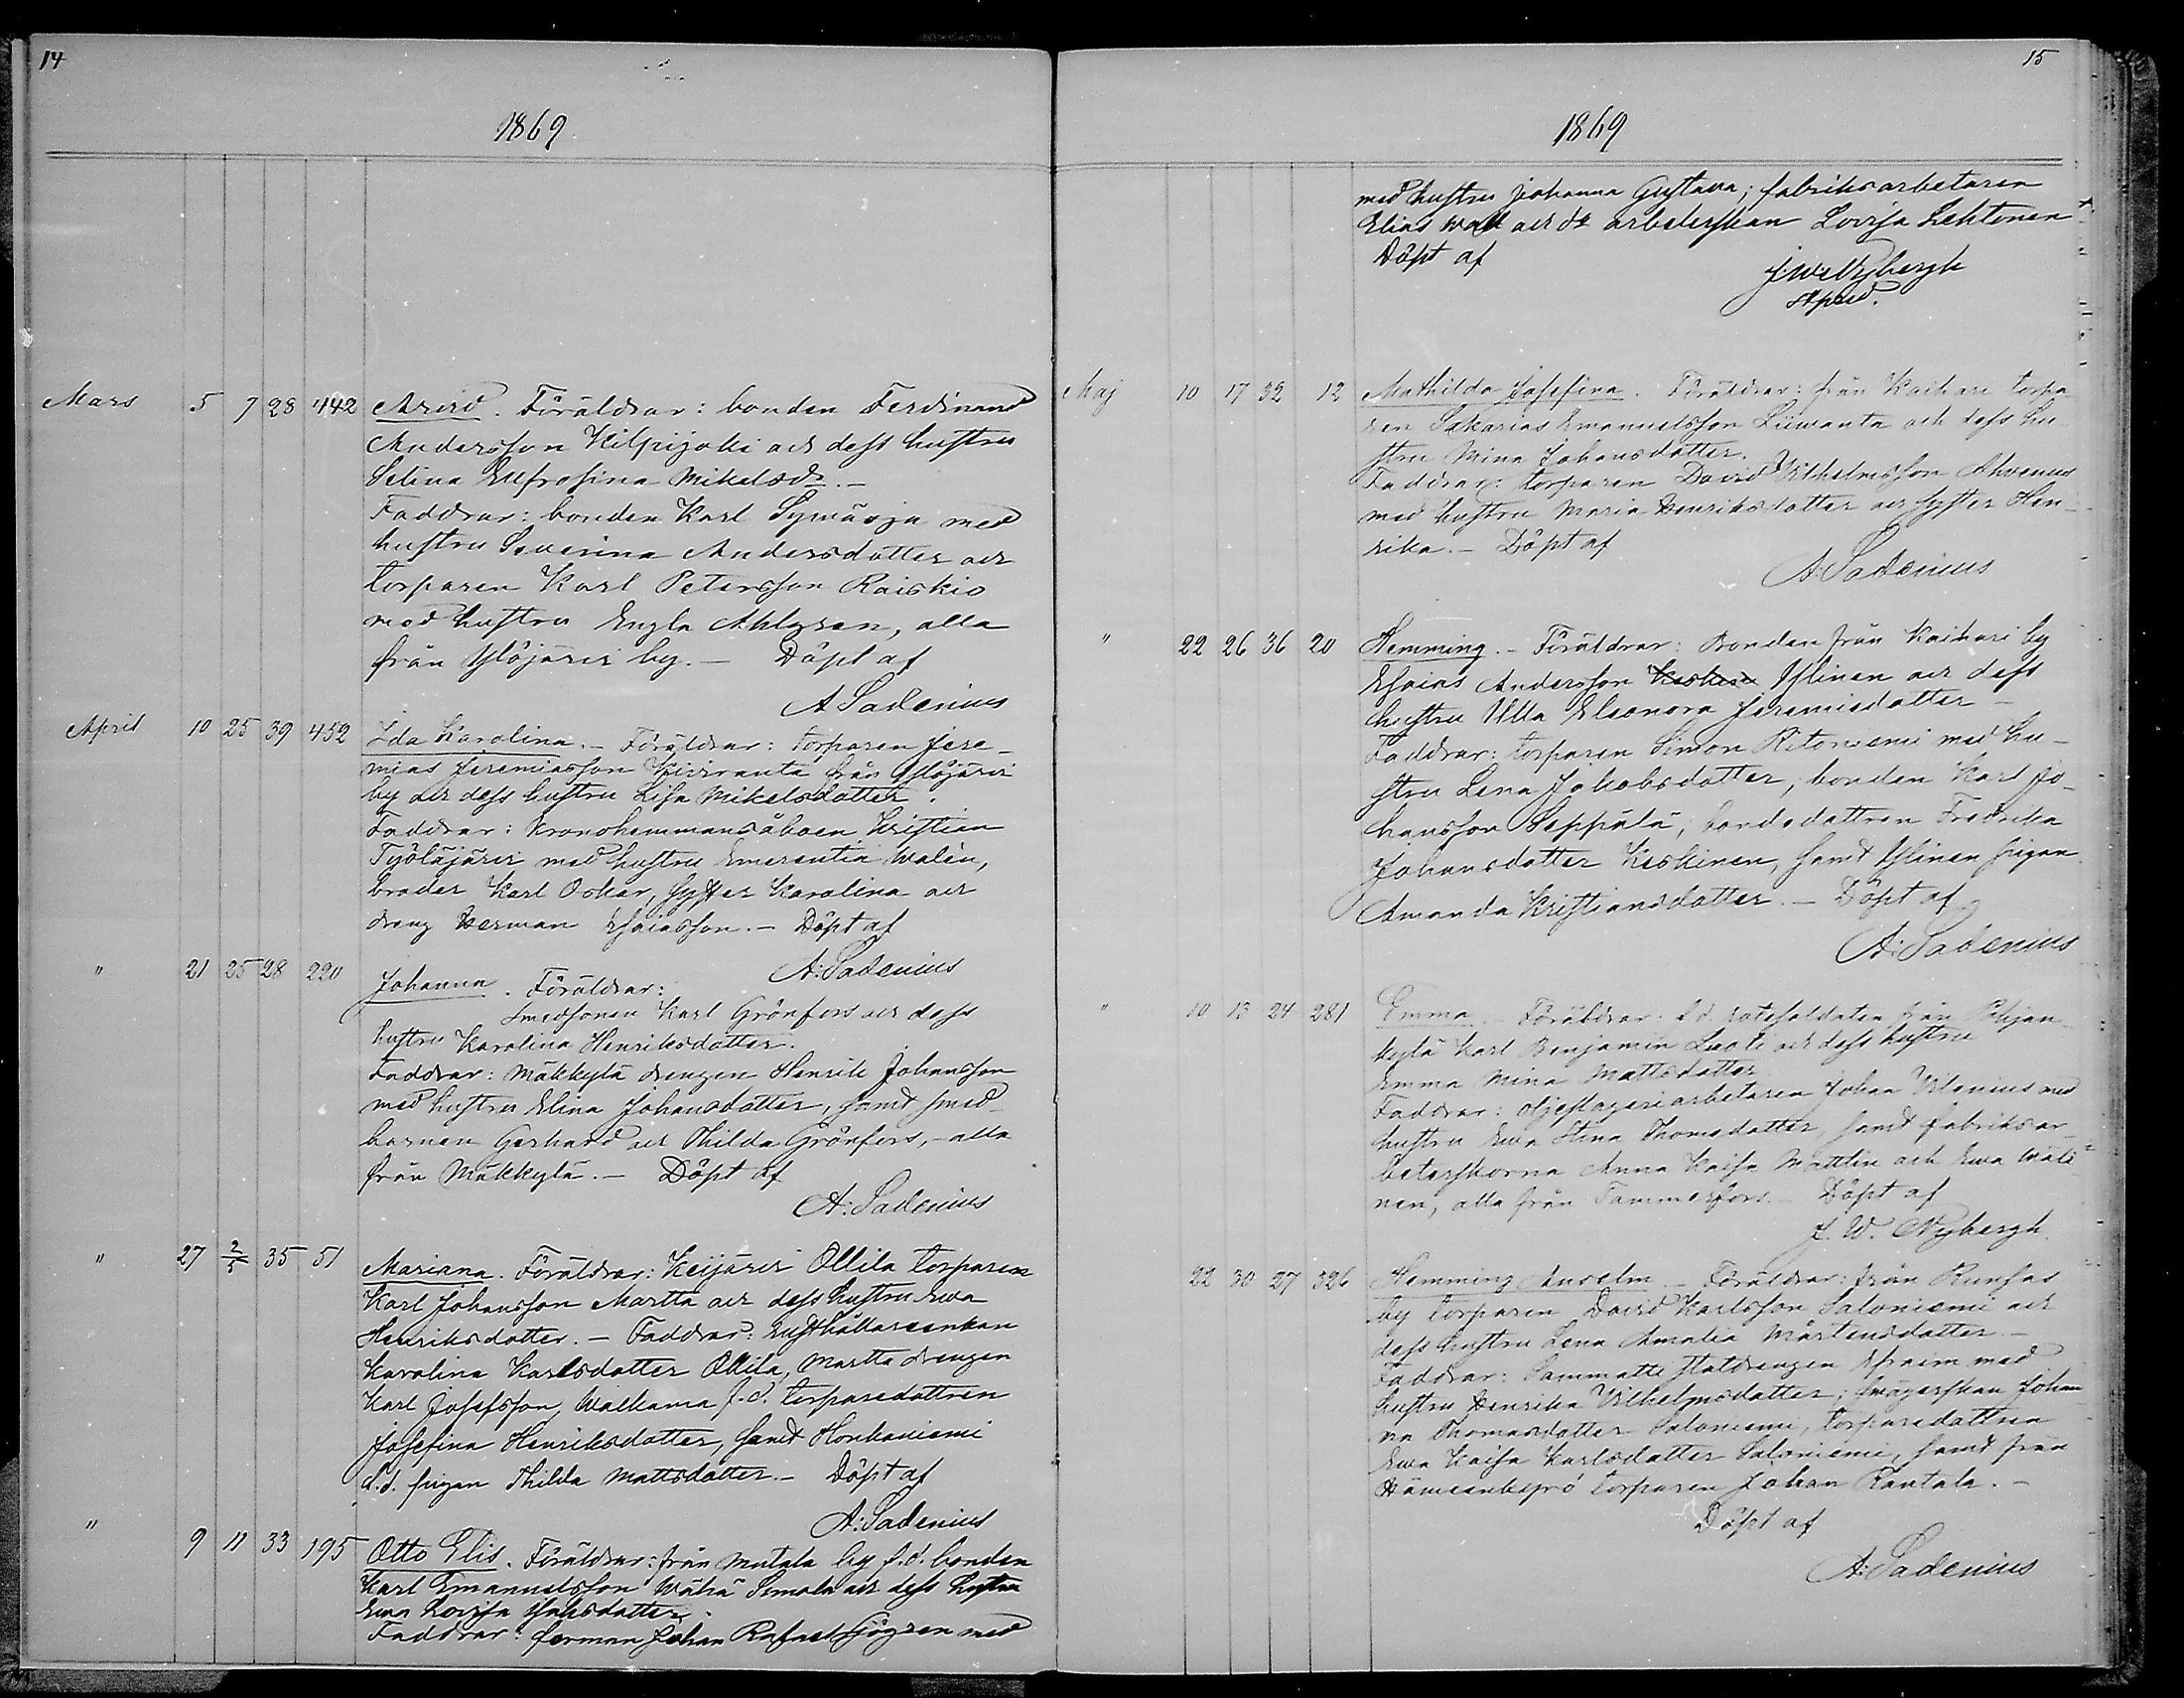 14
1869
Mars 5 7 28 442 Arvid. Föräldrar: bonden Ferdinand
Andersson Kilpijoki och dess hustru
Selina Eufrosina Mikelsdr. –
Faddrar: bonden Karl Sywäoja med
hustru Severina Andersdotter och
torparen Karl Petersson Raiskio
med hustru Engla Ahlgren, alla
från Ylöjärvi by. – Döpt af
A Sadenius
April 10 25 39 452 Ida Karolina. – Föräldrar: torparen Jere-
mias Jeremiasson Kiviranta från Ylöjärvi
by och dess hustru Lisa Mikelsdotter.
Faddrar: Kronohemmansåboen Kristian
Työläjärvi med hustru Emerentia Walén,
broder Karl Oskar, syster Karolina och
dreng Herman Esaiasson. – Döpt af
A: Sadenius
" 21 25 28 220 Johanna. Föräldrar:
Smedsonen Karl Grönfors och dess
hustru Karolina Henriksdotter.
Faddrar: Mäkkylä drengen Henrik Johansson
med hustru Elina Johansdotter, samt smed-
barnen Gerhard och Thilda Grönfors, – alla
från Mäkkylä. – Döpt af
A: Sadenius
" 27 2/5 35 51 Mariana. Föräldrar: Keijärvi Ollila torparen
Karl Johansson Martta och dess hustru Ewa
Henriksdotter. – Faddrar: Rusthållareenkan
Karolina Karlsdotter Ollila, Martta drengen
Karl Josefsson, Walkama f.d. torparedottren
Josefina Henriksdotter, samt Honkaniemi
f.d. pigan Thilda Mattsdotter. – Döpt af
A: Sadenius
" 9 11 33 195 Otto Elis. Föräldrar: från Mutala by f.d. bonden
Karl Emanuelsson Wähä Simola och dess hustru
Ewa Lovisa Isaksdotter.
Faddrar: forman Johan Rafael Sjögren med
15
1869
med hustru Johanna Gustava; fabriksarbetaren
Elias Wall och do arbeterskan Lovisa Lehtonen
Döpt af
J W Nybergh
Maj 10 17 32 12 Mathilda Josefina. Föräldrar: från Kaihari torpa-
ren Sakarias Emanuelsson Liiwanta och dess hu-
stru Mina Johansdotter.
Faddrar: torparen David Vilhelmsson Ahvenus
med hustru Maria Henriksdotter och syster Hen-
rika. – Döpt af
A: Sadenius
" 22 26 36 20 Hemming. – Föräldrar: Bonden från Kaihari by
Esaias Andersson Keskinen Ylinen och dess
hustru Ulla Eleonora Jeremiedotter –
Faddrar: torparen Simon Ritoniemi med hu-
stru Lena Jakobsdotter, bonden Karl Jo-
hansson Seppälä, bondedottren Fredrika
Johansdotter Keskinen, samt Ylinen pigan
Amanda Kristiansdotter. – Döpt af
A: Sadenius
" 10 13 24 281 Emma. – Föräldrar: f.d. rotesoldaten från Pohjan-
kylä Karl Benjamin Luoti och dess hustru
Emma Mina Mattsdotter
Faddrar: oljeslageriarbetaren Johan Vilenius med
hustru Ewa Stina Thomasdotter, samt fabriksar-
beterskorna Anna Kaisa Mattlin och Ewa Wäli-
nen, alla från Tammerfors. Döpt af
J. W. Nybergh.
22 30 27 326 Hemming Anselm. – Föräldrar: från Runsas
by torparen David Karlsson Saloniemi och
dess hustru Lena Amalia Mårtensdotter. –
Faddrar: Sammatti statdrengen Efraim med
hustru Henrika Vilhelmsdotter; swägerskan Johan-
na Thomasdotter Saloniemi, torparedottren
Ewa Kaisa Karlsdotter Saloniemi, samt från
Hämeenkyrö torparen Johan Rantala. –
Döpt af
A: Sadenius